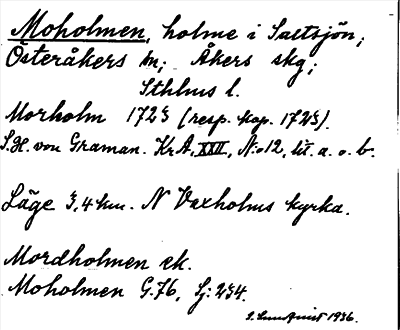 Moholmen, holme i Saltsjön;
Österåkers sn; Åkers skg;
Sthlms l.
Morholm 1723 (resp. kop. 1723).
S.H. von Graman. Kr.A, XXII, N:o 12, lit. a. o. b.
Läge 3,4 km. N Vaxholms kyrka.
Mordholmen ek.
Moholmen G.76, Sj: 234.
S. Lundqvist 1936.